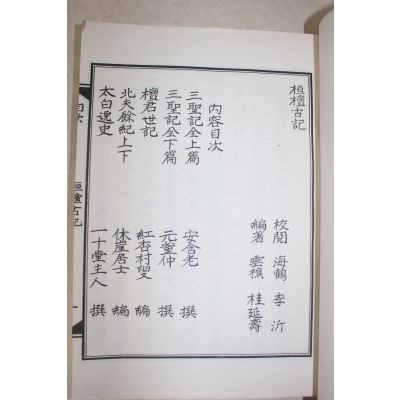 桓檀古記
校閱 海鶴 李沂
編著 雲樵 桂延壽
內容目次
三聖記全上篇 安含老 撰
三聖記全下篇 元董仲 撰
檀君世記 紅杏村叟 編
北夫餘紀上下 休崖居士 編
太白逸史 一十堂主人 撰
目次
桓檀古記
一